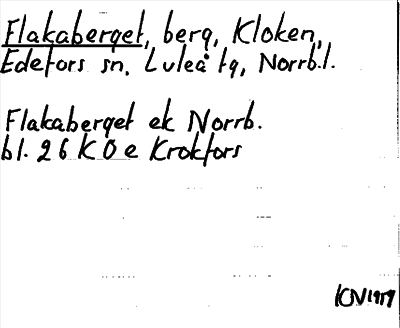 Flakaberget, berg, Kloken,
Edefors sn, Luleå tg, Norrb.l.
Flakaberget ek Norrb.
bl. 26 K 0 e Krokfors